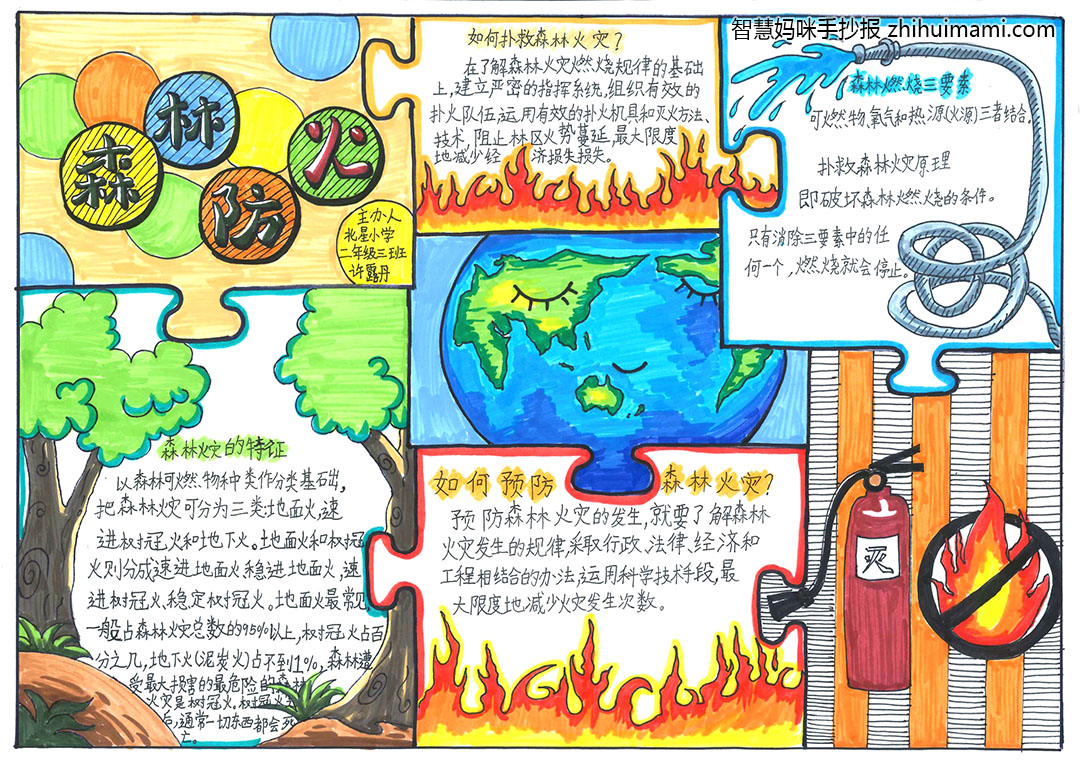 智慧妈咪手抄报 zhihuimami.com
森林防火
主办人
北星小学
二年级三班
许露丹
如何扑救森林火灾？
在了解森林火灾燃烧规律的基础
上，建立严密的指挥系统，组织有效的
扑火队伍，运用有效的扑火机具和灭火方法、
技术，阻止林区火势蔓延，最大限度
地减少经济损失损失。
森林燃烧三要素
可燃物、氧气和热源(火源)三者结合。
扑救森林火灾原理
即破坏森林燃烧的条件。
只有消除三要素中的任
何一个，燃烧就会停止。
森林火灾的特征
以森林可燃物种类作分类基础，
把森林火灾可分为三类地面火，速
进树冠火和地下火。地面火和树冠
火则分成速进地面火、稳进地面火，速
进树冠火、稳定树冠火。地面火最常见
一般占森林火灾总数的95%以上，树冠火占百
分之几，地下火(泥炭火)占不到1%，森林遭
受最大损害的最危险的森林
火灾是树冠火。树冠火
后，通常一切东西都会死
亡。
如何预防森林火灾？
预防森林火灾的发生，就要了解森林
火灾发生的规律，采取行政、法律、经济和
工程相结合的办法，运用科学技术手段，最
大限度地减少火灾发生次数。
灭